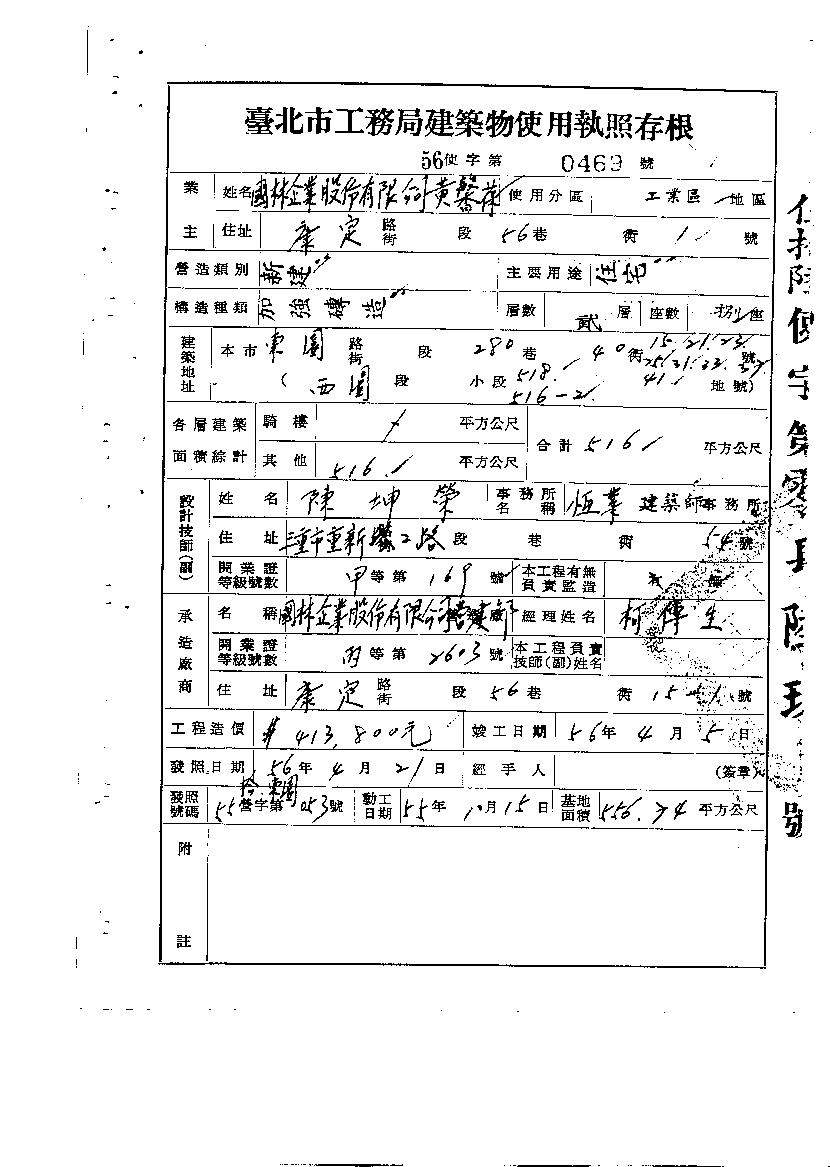 臺北市工務局建築物使用執照存根
56使字第 0469 號
業主 姓名 國林企業股份有限公司黃馨 使用分區 工業區 地區
住址 康定 路街 段 56巷 街 1 號
營造類別 新建 主要用途 住宅
構造種類 加強磚造 層數 貳層 座數 捌座
建築地址 本市 東園 路街 段 280巷 40街 15.21.23 號
25.31.33.
(西園 段 小段 518. 41 地號)
516-2
各層建築面積綜計 騎樓 / 平方公尺 合計 516 平方公尺
其他 516. 平方公尺
設計技師(副) 姓名 陳坤榮 事務所名稱 恆業建築師事務所
住址 三重市重新路2路 段 巷 街 54號
開業證等級號數 甲等第 169 號 本工程有無負責監造
承造廠商 名稱 國林企業股份有限公司營建部 廠經理姓名 柯傳生
開業證等級號數 丙等第 2603 號 本工程負責技師(副)姓名
住址 康定 路街 段 56巷 街 15-1號
工程造價 # 413,800元 竣工日期 56年 4月 5日
發照日期 56年 4月 21日 經手人 (簽章)
發照號碼 55營字第053號 動工日期 55年 10月15日 基地面積 556.74 平方公尺
東園
附註
伍拾陸使字第零肆陸玖號